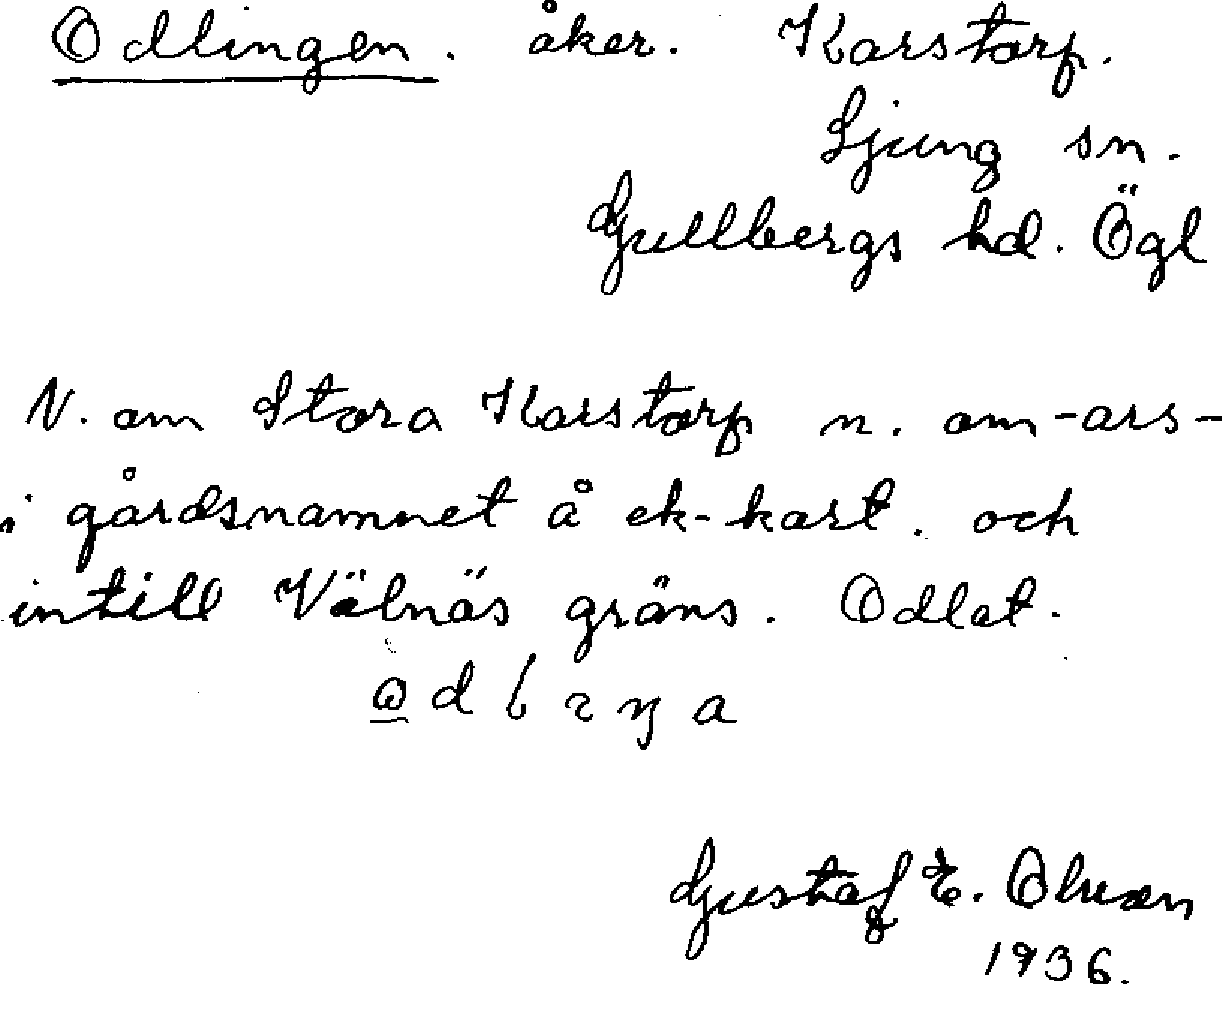 Odlingen. åker. Karstorp.
Ljung sn.
Gullbergs hd. Ögl
N. om Stora Karstorp n. om -ars-
i gårdsnamnet å ek-kart. och
intill Välnäs gräns. Odlat.
Gustaf E. Olsson
1936.